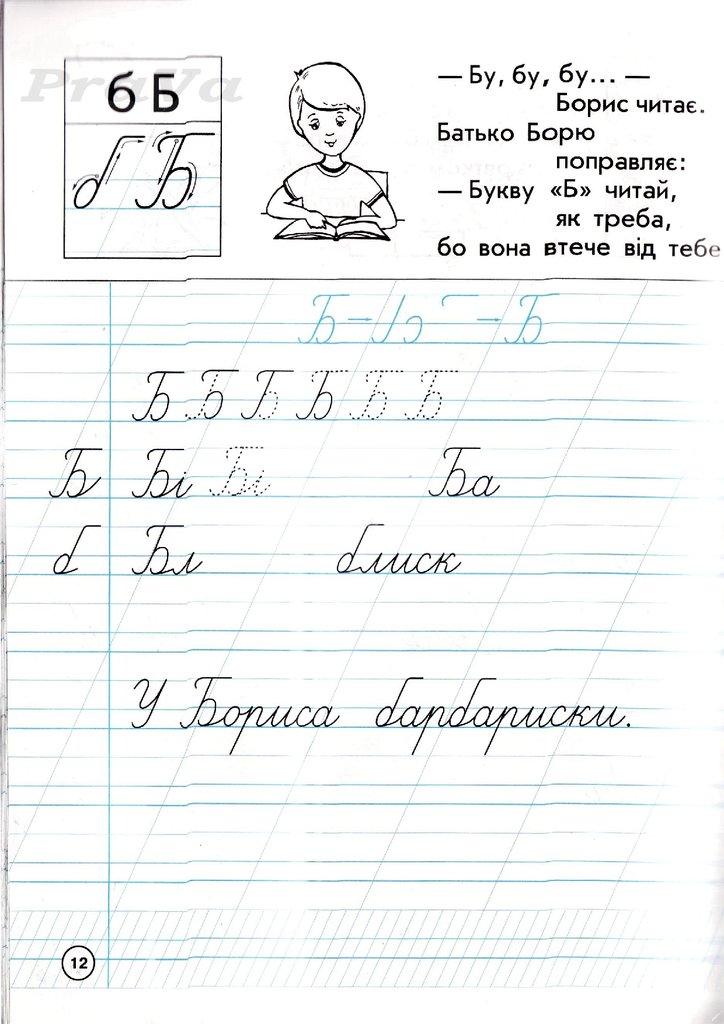 PraVa
б Б
б Б
— Бу, бу, бу... —
Борис читає.
Батько Борю
поправляє:
— Букву «Б» читай,
як треба,
бо вона втече від тебе
Б → Б
Б Б Б Б Б Б
Б Бі Бі Ба
б Бл блиск
У Бориса барбариски.
12